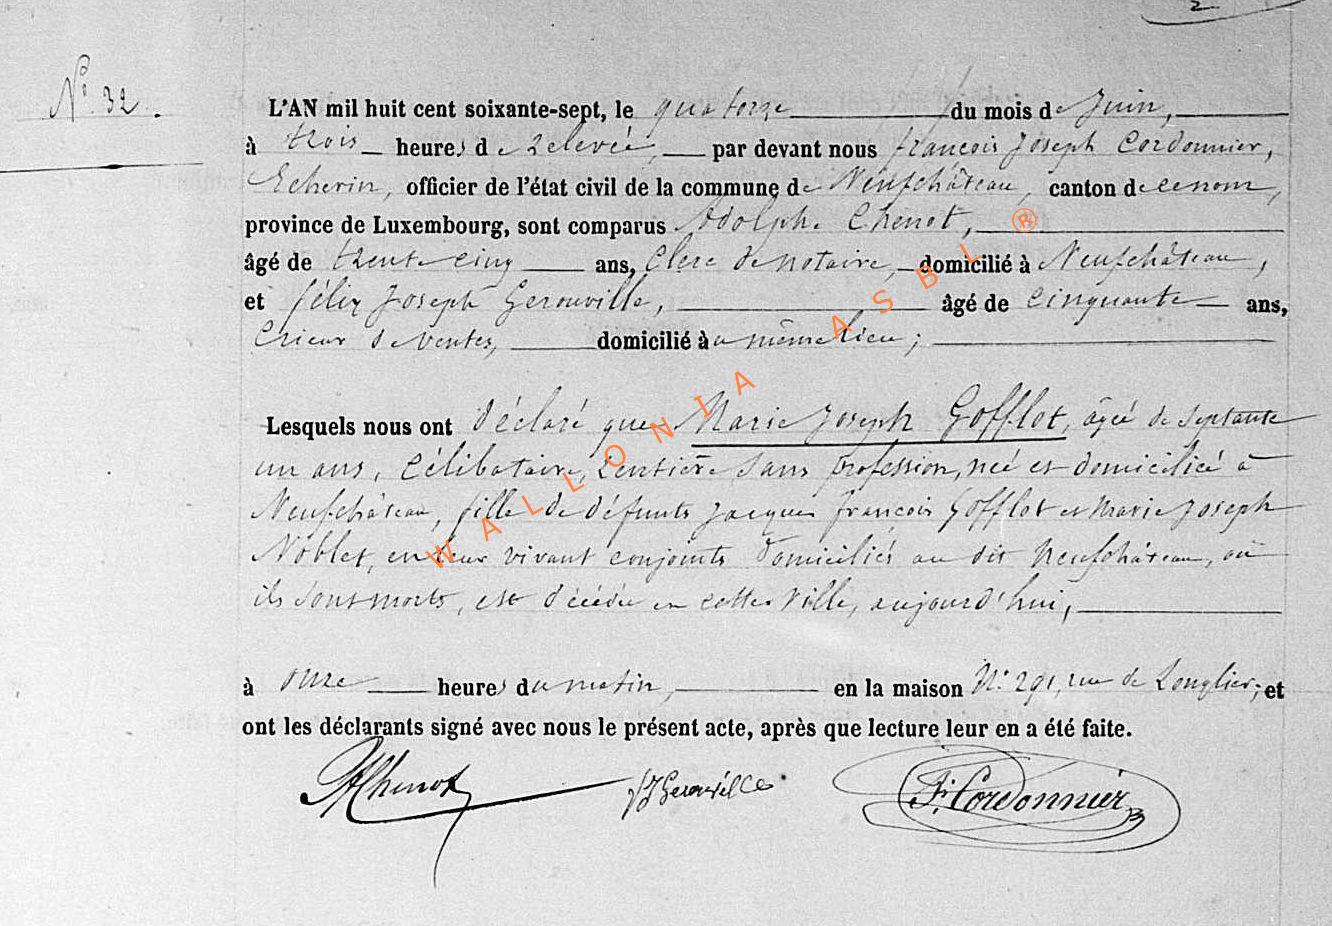 2
N° 32.
L'AN mil huit cent soixante-sept, le quatorze du mois de Juin,
à trois heures de relevée, par devant nous françois Joseph Cordonnier,
Echevin, officier de l'état civil de la commune de Neufchâteau, canton de ce nom,
province de Luxembourg, sont comparus Adolphe Chenot,
âgé de trente cinq ans, Clerc de notaire, domicilié à Neufchâteau,
et félix Joseph Gerouville, âgé de cinquante ans,
Crieur de ventes, domicilié au même lieu;
Lesquels nous ont déclaré que Marie Joseph Gofflot, âgée de septante
un ans, Célibataire, rentière sans profession, née et domiciliée à
Neufchâteau, fille de défunts Jacques françois Gofflot et Marie Joseph
Noblet, en leur vivant conjoints domiciliés au dit Neufchâteau, où
ils sont morts, est décédée en cette ville, aujourd'hui,
à onze heures du matin, en la maison N° 291, rue de Longlier; et
ont les déclarants signé avec nous le présent acte, après que lecture leur en a été faite.
AChenot FJGerouville F. Cordonnier
WALLONIA ASBL ®